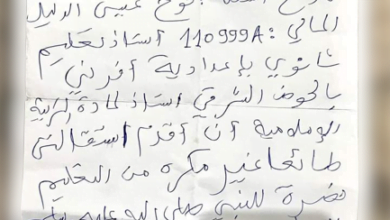 الدليل
المالي: 110999A أستاذ تعليم
ثانوي بإعدادية أفرني
بالحوض الشرقي أستاذ لمادة التربية
الإسلامية أن أقدم استقالتي
طائعا غير مكره من التعليم
نصرة للنبي صلى الله عليه